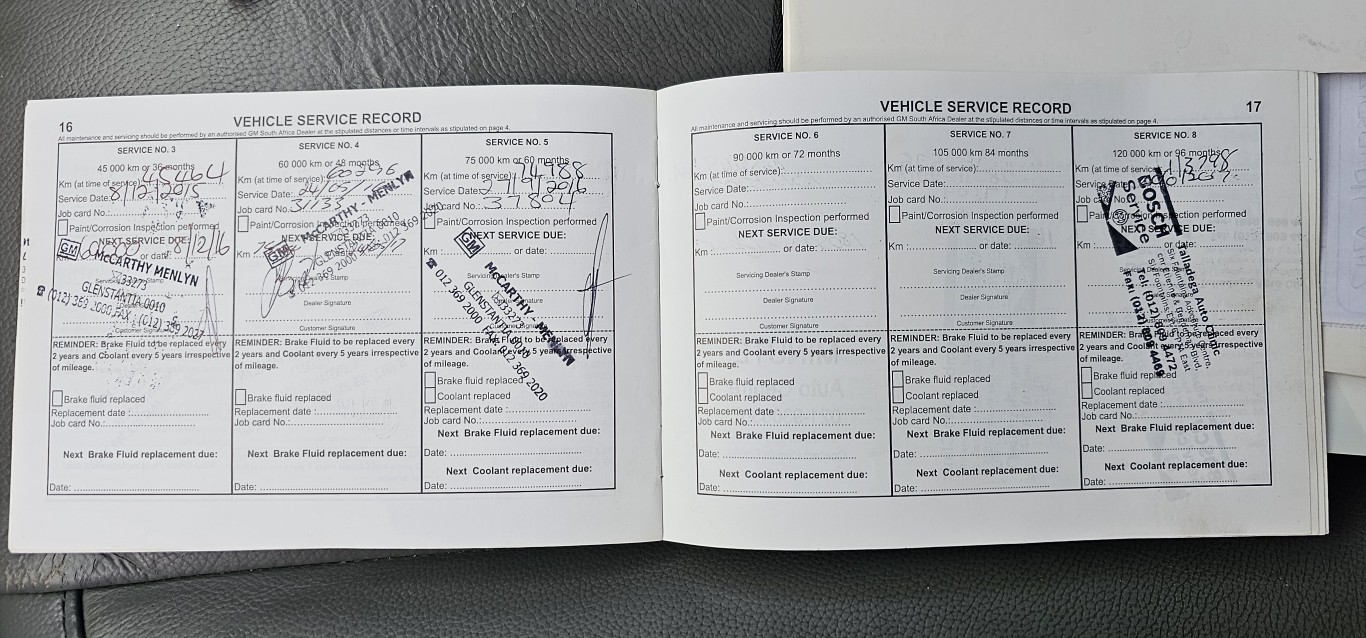 16
VEHICLE SERVICE RECORD
All maintenance and servicing should be performed by an authorised GM South Africa Dealer at the stipulated distances or time intervals as stipulated on page 4.
SERVICE NO. 3
45 000 km or 36 months
Km (at time of service):
Service Date: 8/12/2015
Job card No.:
Paint/Corrosion Inspection performed
NEXT SERVICE DUE:
or date: 8/12/16
GM
McCARTHY MENLYN
GLENSTANTIA 0010
(012) 369 2000 FAX : (012) 369 2027
Customer Signature
REMINDER: Brake Fluid to be replaced every
2 years and Coolant every 5 years irrespective
of mileage.
Brake fluid replaced
Replacement date :
Job card No.:
Next Brake Fluid replacement due:
Date:
SERVICE NO. 4
60 000 km or 48 months
Km (at time of service):
Service Date:
Job card No. 31133
Paint/Corrosion Inspection performed
NEXT SERVICE DUE:
Km :
GM
McCARTHY - MENLYN
Dealer Signature
Customer Signature
REMINDER: Brake Fluid to be replaced every
2 years and Coolant every 5 years irrespective
of mileage.
Brake fluid replaced
Replacement date :
Job card No.:
Next Brake Fluid replacement due:
Date:
SERVICE NO. 5
75 000 km or 60 months
Km (at time of service): 74988
Service Date:
Job card No.: 37804
Paint/Corrosion Inspection performed
NEXT SERVICE DUE:
Km : or date:
GM
McCARTHY - MENLYN
GLENSTANTIA
012 369 2000 FAX 012 369 2020
REMINDER: Brake Fluid to be replaced every
2 years and Coolant every 5 years irrespective
of mileage.
Brake fluid replaced
Coolant replaced
Replacement date :
Job card No.:
Next Brake Fluid replacement due:
Date:
Next Coolant replacement due:
Date:
VEHICLE SERVICE RECORD
17
All maintenance and servicing should be performed by an authorised GM South Africa Dealer at the stipulated distances or time intervals as stipulated on page 4.
SERVICE NO. 6
90 000 km or 72 months
Km (at time of service):
Service Date:
Job card No.:
Paint/Corrosion Inspection performed
NEXT SERVICE DUE:
Km : or date:
Servicing Dealer's Stamp
Dealer Signature
Customer Signature
REMINDER: Brake Fluid to be replaced every
2 years and Coolant every 5 years irrespective
of mileage.
Brake fluid replaced
Coolant replaced
Replacement date :
Job card No.:
Next Brake Fluid replacement due:
Date:
Next Coolant replacement due:
Date:
SERVICE NO. 7
105 000 km 84 months
Km (at time of service):
Service Date:
Job card No.:
Paint/Corrosion Inspection performed
NEXT SERVICE DUE:
Km : or date:
Servicing Dealer's Stamp
Dealer Signature
Customer Signature
REMINDER: Brake Fluid to be replaced every
2 years and Coolant every 5 years irrespective
of mileage.
Brake fluid replaced
Coolant replaced
Replacement date :
Job card No.:
Next Brake Fluid replacement due:
Date:
Next Coolant replacement due:
Date:
SERVICE NO. 8
120 000 km or 96 months
Km (at time of service): 113298
Service Date:
Job card No.:
Paint/Corrosion Inspection performed
NEXT SERVICE DUE:
Km : or date:
BOSCH
Service
Talladega Auto Clinic
REMINDER: Brake Fluid to be replaced every
2 years and Coolant every 5 years irrespective
of mileage.
Brake fluid replaced
Coolant replaced
Replacement date :
Job card No.:
Next Brake Fluid replacement due:
Date:
Next Coolant replacement due:
Date: